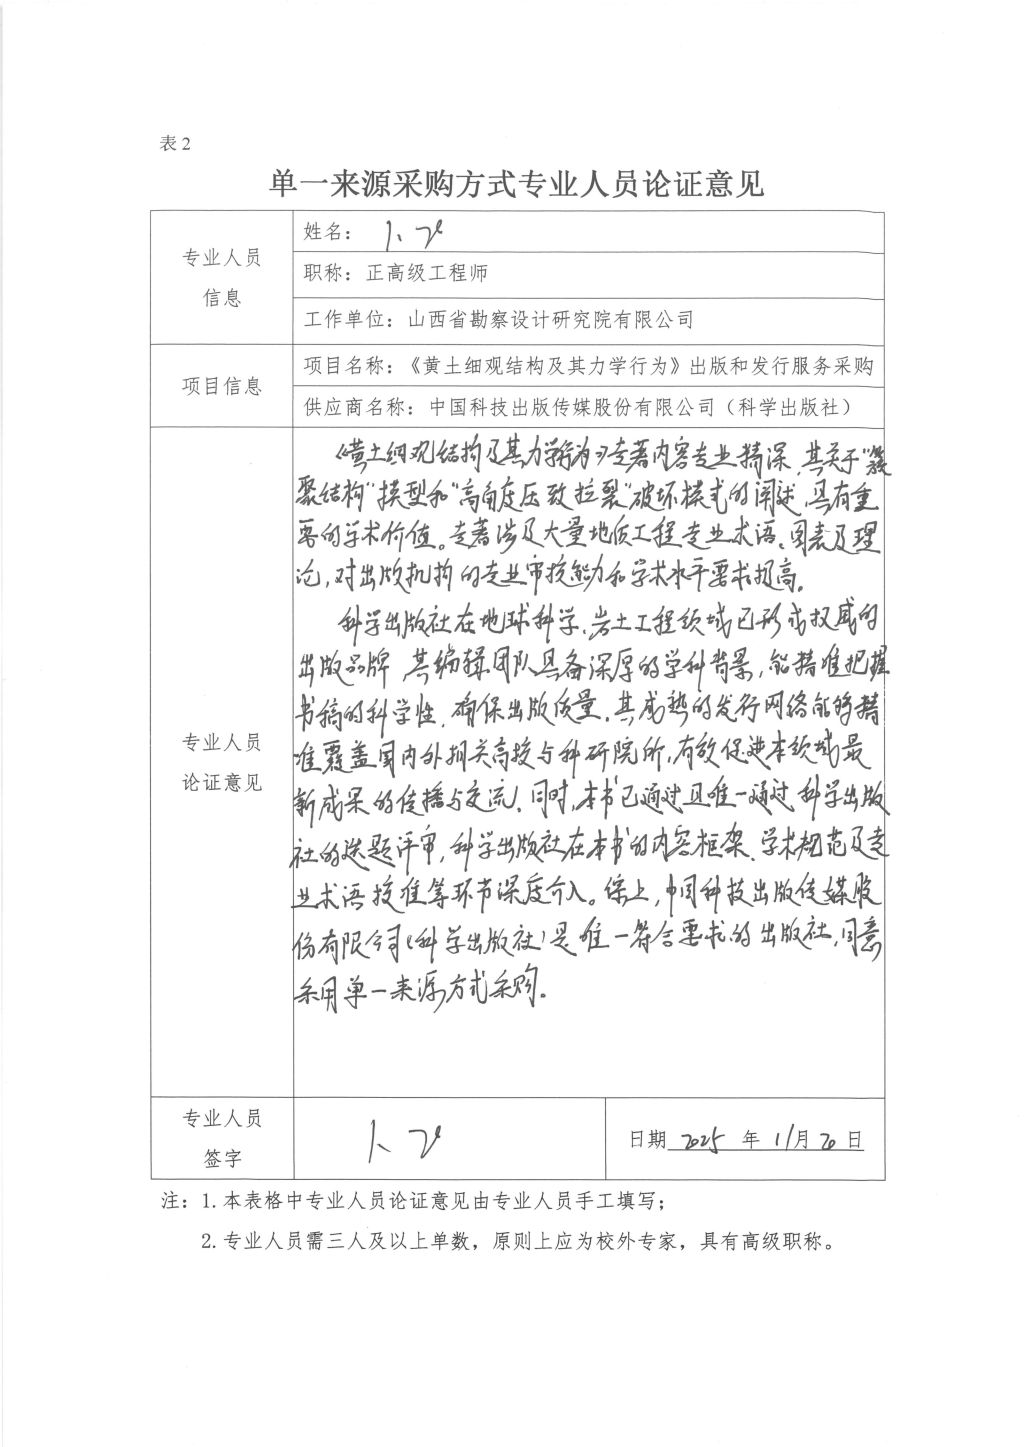 表2
单一来源采购方式专业人员论证意见
专业人员
信息
姓名：
职称：正高级工程师
工作单位：山西省勘察设计研究院有限公司
项目信息
项目名称：《黄土细观结构及其力学行为》出版和发行服务采购
供应商名称：中国科技出版传媒股份有限公司（科学出版社）
专业人员
论证意见
《黄土细观结构及其力学行为》专著内容专业精深，其关于“簇
聚结构”模型和“高角度压致拉裂”破坏模式的阐述，具有重
要的学术价值。专著涉及大量地质工程专业术语、图表及理
论，对出版机构的专业审校能力和学术水平要求极高。
科学出版社在地球科学、岩土工程领域已形成权威的
出版品牌，其编辑团队具备深厚的学科背景，能精准把握
书稿的科学性，确保出版质量。其成熟的发行网络能够精
准覆盖国内外相关高校与科研院所，有效促进本领域最
新成果的传播与交流。同时，本书已通过且唯一通过科学出版
社的选题评审，科学出版社在本书的内容框架、学术规范及专
业术语校准等环节深度介入。综上，中国科技出版传媒股
份有限公司（科学出版社）是唯一符合要求的出版社，同意
采用单一来源方式采购。
专业人员
签字
日期 2025 年 11 月 20 日
注：1.本表格中专业人员论证意见由专业人员手工填写；
2.专业人员需三人及以上单数，原则上应为校外专家，具有高级职称。